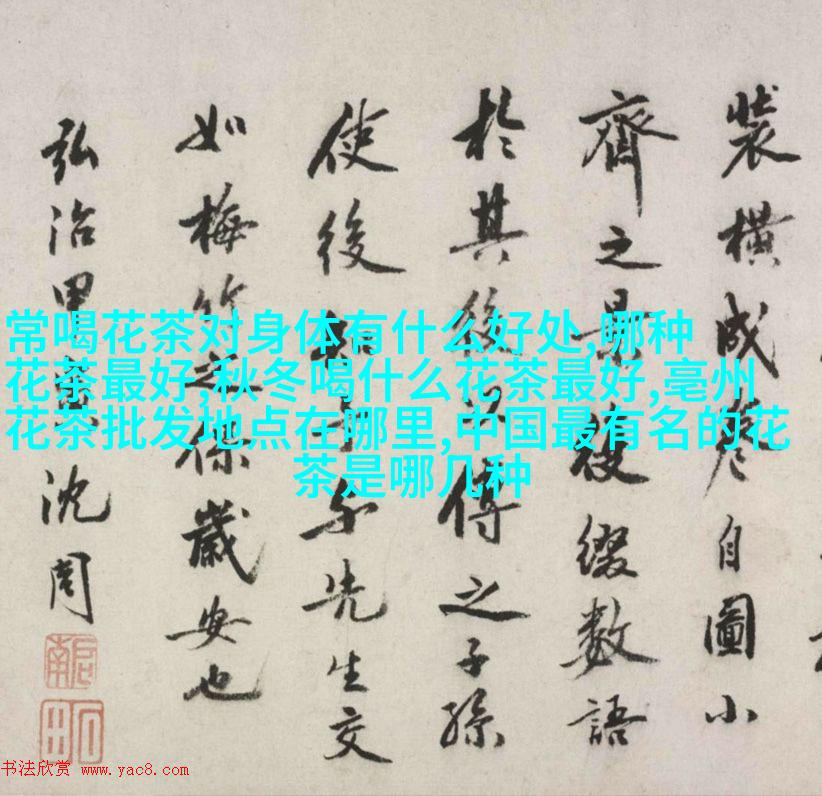 常喝花茶对身体有什么好处,哪种
花茶最好,秋冬喝什么花茶最好,亳州
花茶批发地点在哪里,中国最有名的花
茶是哪几种
裝橫成卷自圖小
齊之景後綴數語
於其後傳之子孫
使後先生交
如梅竹之保歲安也
弘治甲沈周
啟南
石田
书法欣赏 www.yac8.com